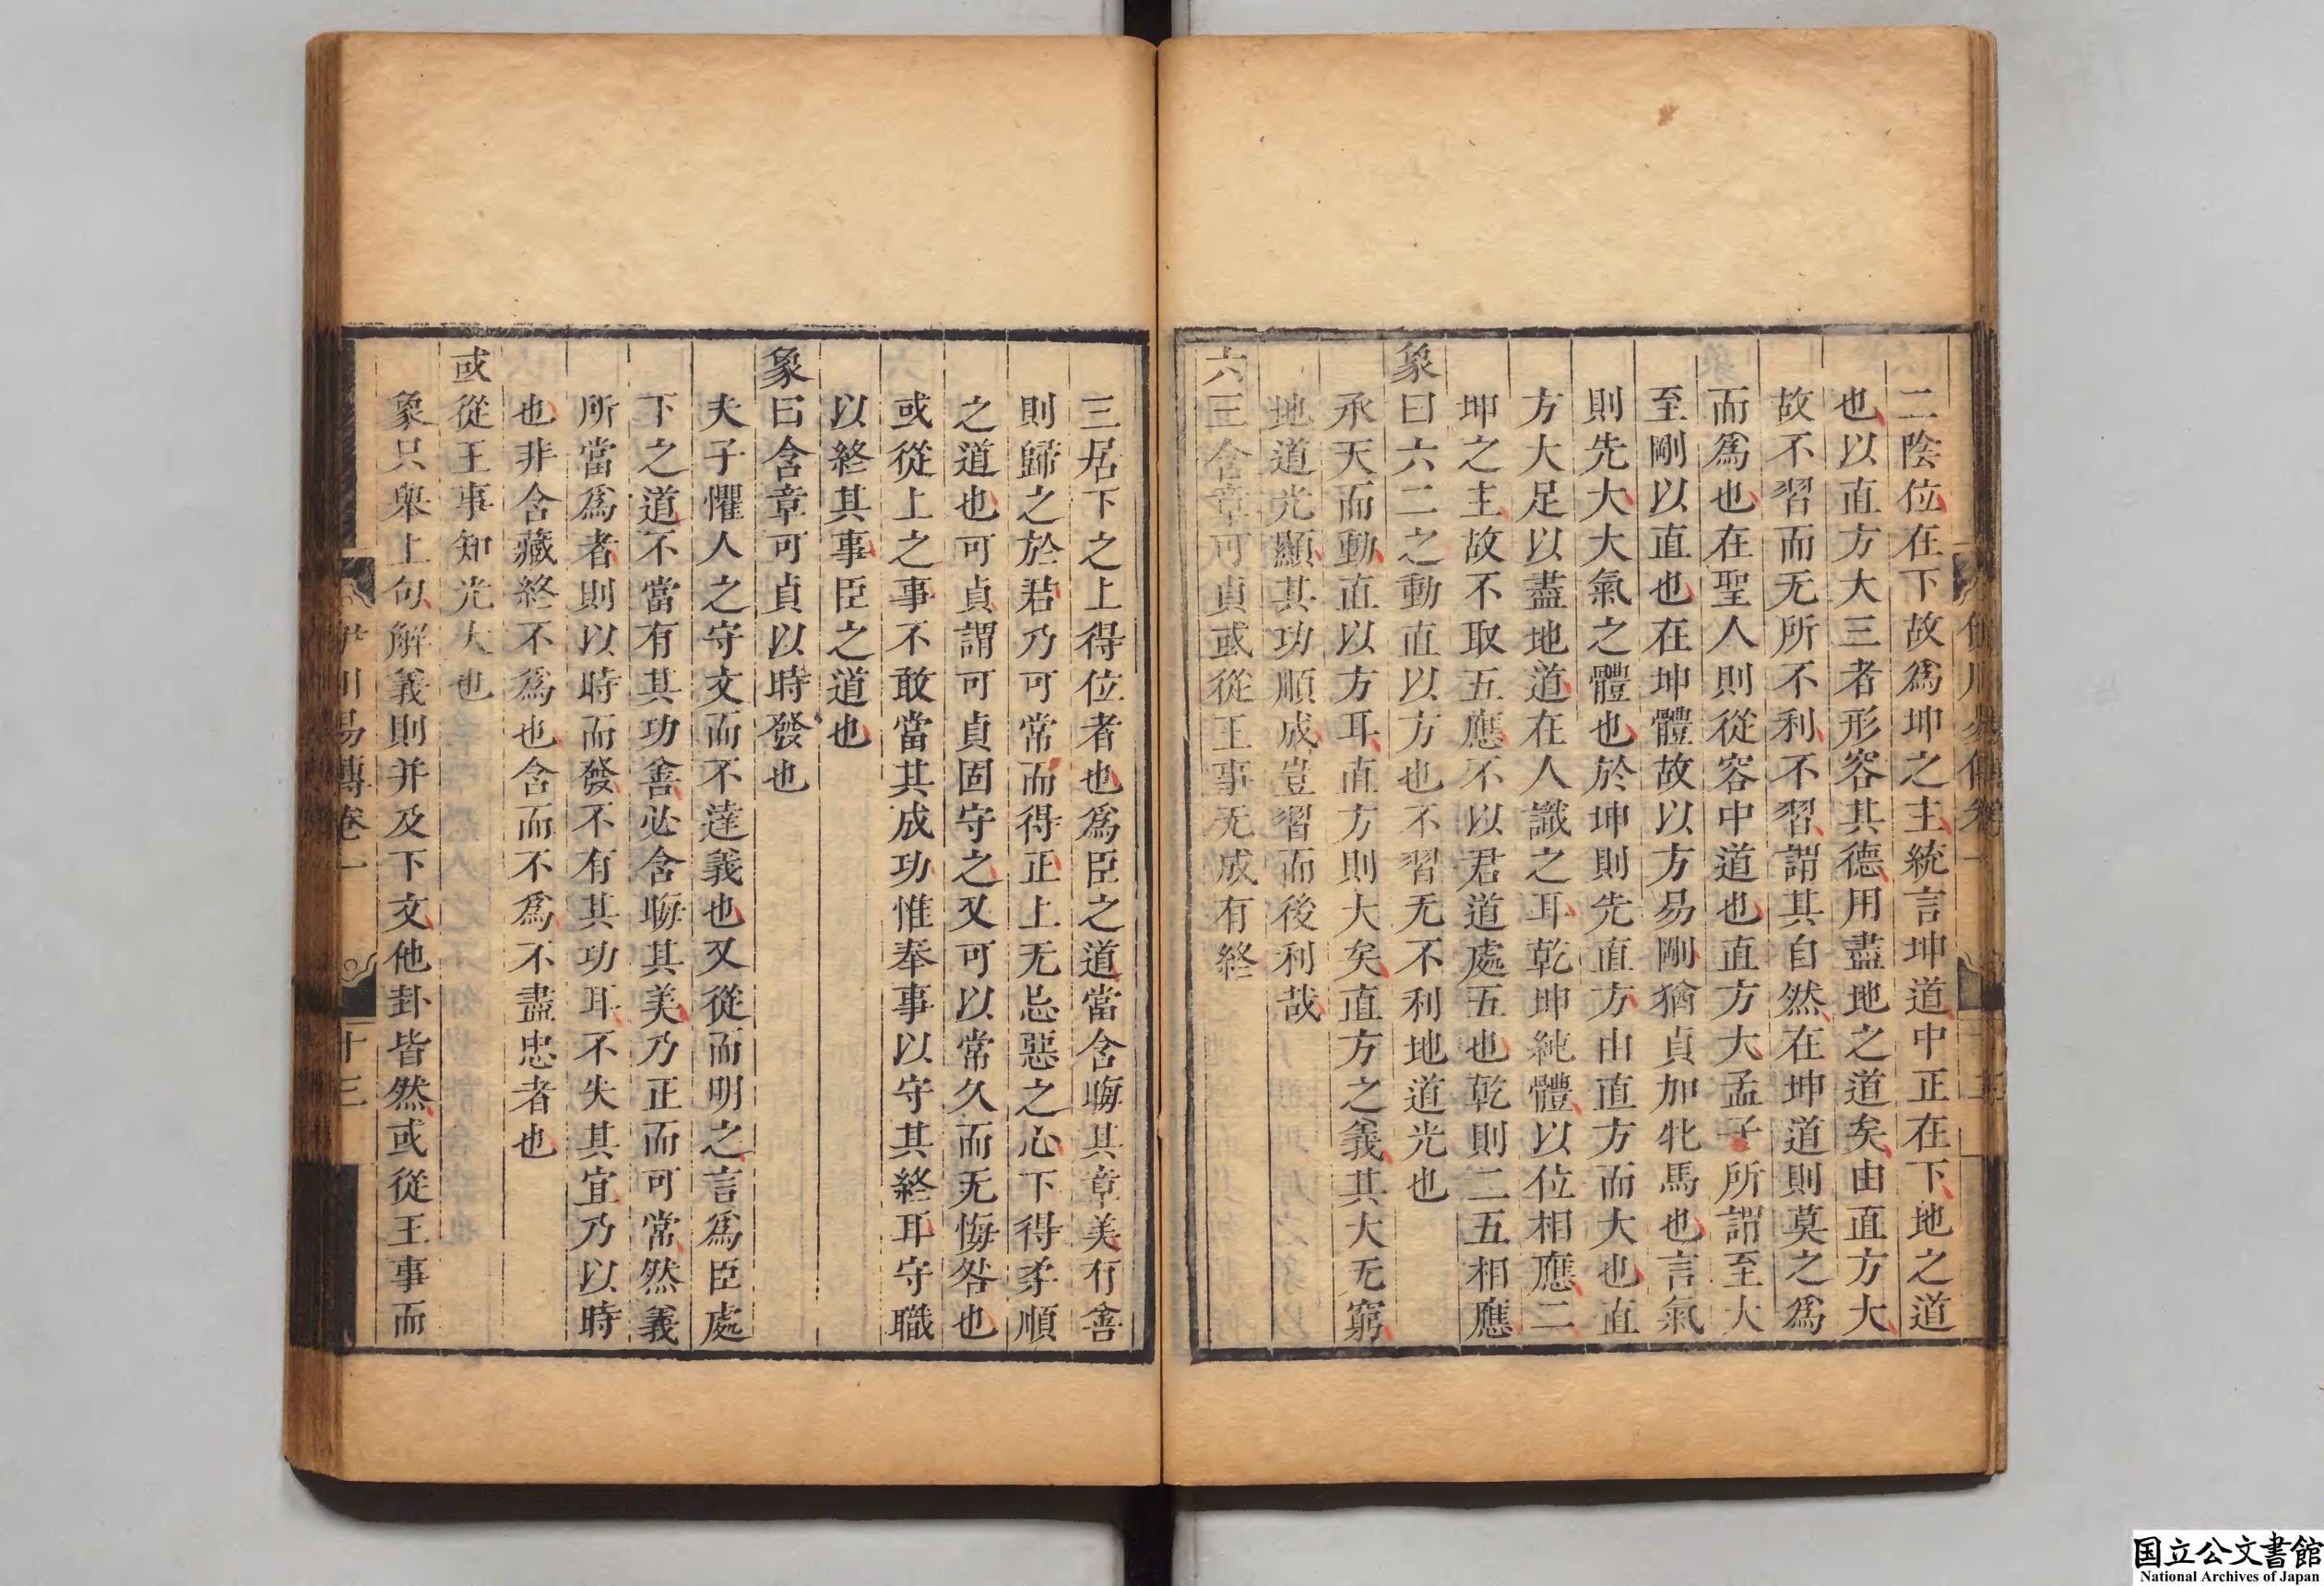 二陰位在下故爲坤之主統言坤道中正在下地之道
也以直方大三者形容其德用盡地之道矣由直方大
故不習而无所不利不習謂其自然在坤道則莫之爲
而爲也在聖人則從容中道也直方大孟子所謂至大
至剛以直也在坤體故以方易剛猶貞加牝馬也言氣
則先大大氣之體也於坤則先直方由直方而大也直
方大足以盡地道在人識之耳乾坤純體以位相應二
坤之主故不取五應不以君道處五也乾則二五相應
象曰六二之動直以方也不習无不利地道光也
承天而動直以方耳直方則大矣直方之義其大无窮
地道光顯其功順成豈習而後利哉
六三含章可貞或從王事无成有終
三居下之上得位者也爲臣之道當含晦其章美有善
則歸之於君乃可常而得正上无忌惡之心下得柔順
之道也可貞謂可貞固守之又可以常久而无悔咎也
或從上之事不敢當其成功惟奉事以守其終耳守職
以終其事臣之道也
象曰含章可貞以時發也
夫子懼人之守文而不達義也又從而明之言爲臣處
下之道不當有其功善必含晦其美乃正而可常然義
所當爲者則以時而發不有其功耳不失其宜乃以時
也非含藏終不爲也含而不爲不盡忠者也
或從王事知光大也
象只舉上句解義則并及下文他卦皆然或從王事而
伊川易傳卷一
十三
国立公文書館
National Archives of Japan